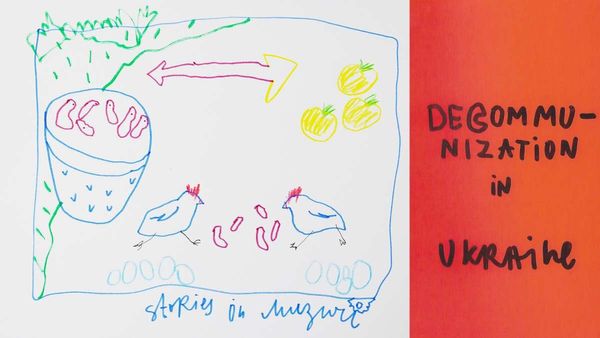 stories in
DECOMMU-
NIZATION
in
UKRAINE